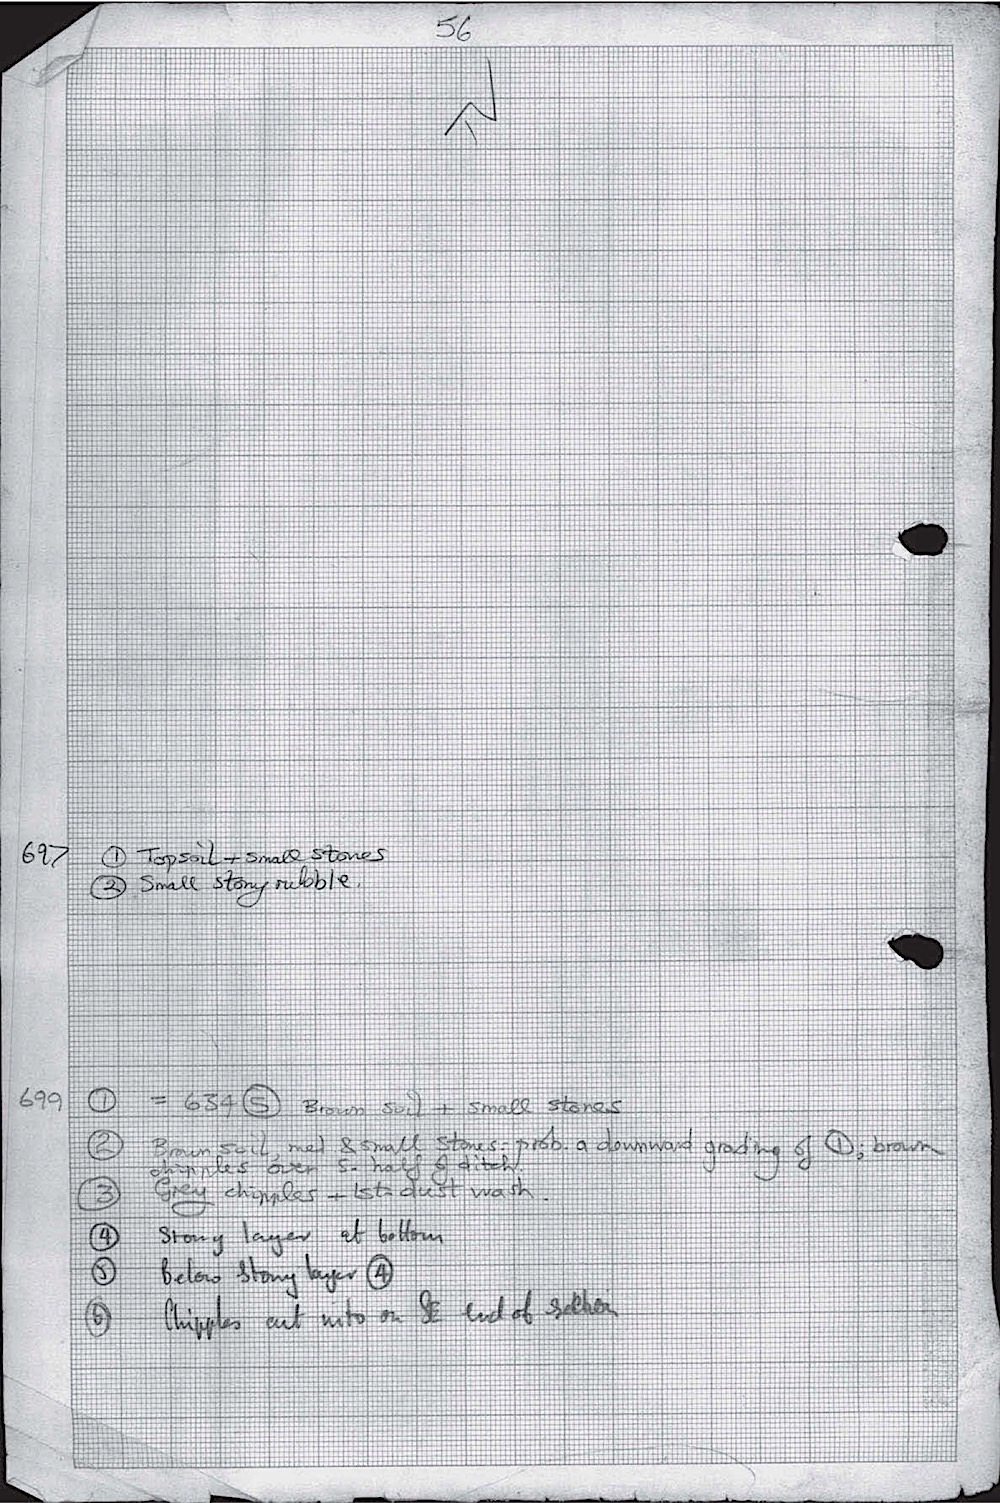 56
697 ① Topsoil + small stones
② Small stony rubble.
699 ① = 634 ⑤ Brown soil + small stones
② Brown soil, med & small stones - prob. a downward grading of ①; brown
chipples over S. half of ditch.
③ Grey chipples + lst. dust wash.
④ Stony layer at bottom
⑤ Below stony layer ④
⑥ Chipples cut into on SE end of section